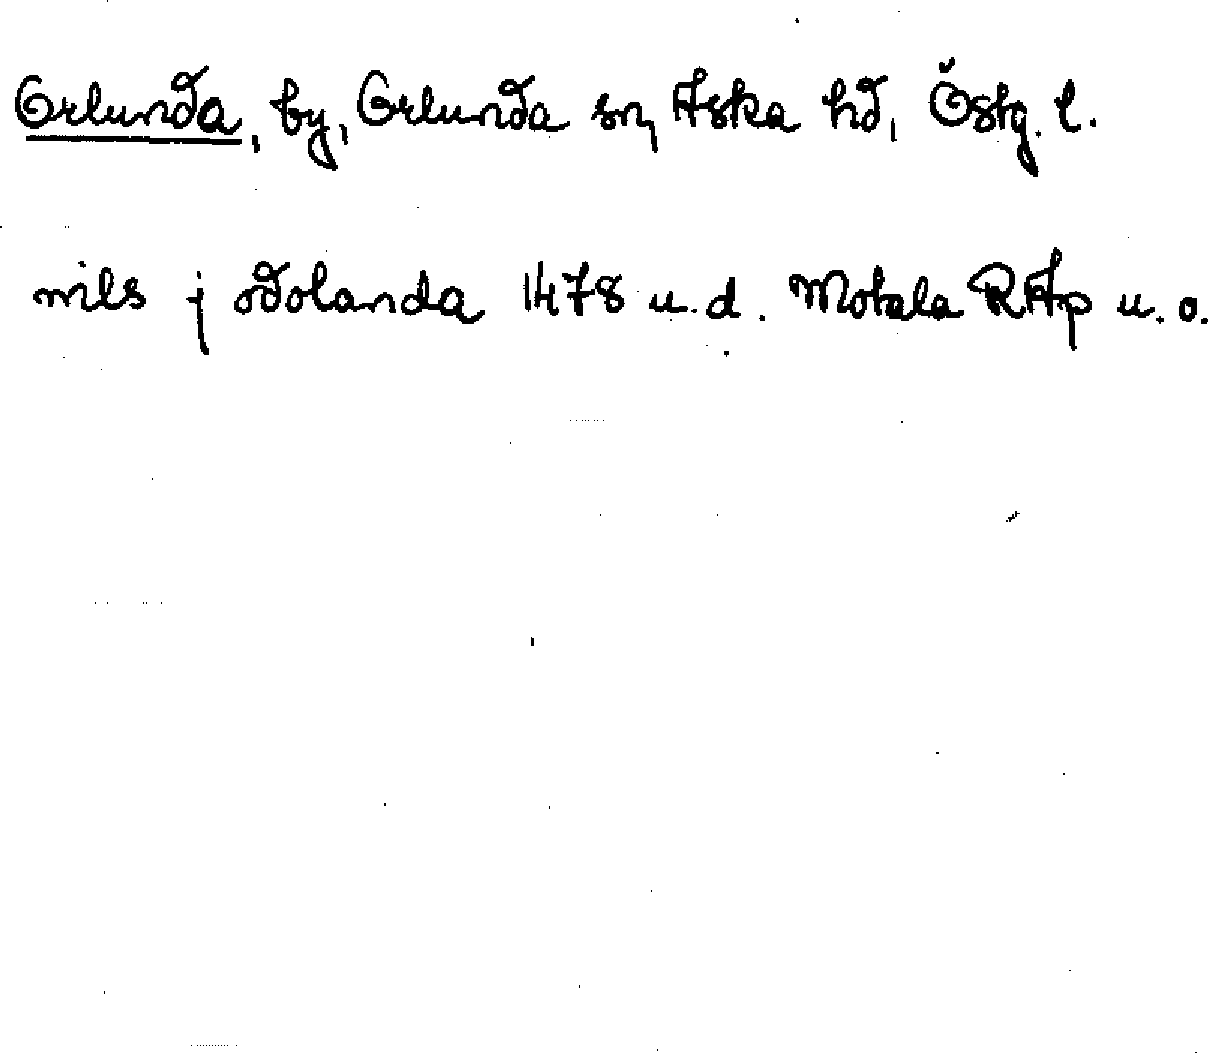 Orlunda, by, Orlunda sn, Aska hd, Östg. l.
nils j odolanda 1478 u.d. Motala RAp u. o.